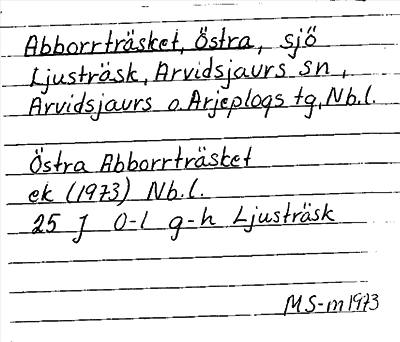 Abborrträsket, Östra, sjö
Ljusträsk, Arvidsjaurs sn,
Arvidsjaurs o Arjeplogs tg, Nb.l.
Östra Abborrträsket
ek (1973) Nb.l.
25 J 0-1 g-h Ljusträsk
MS-m 1973